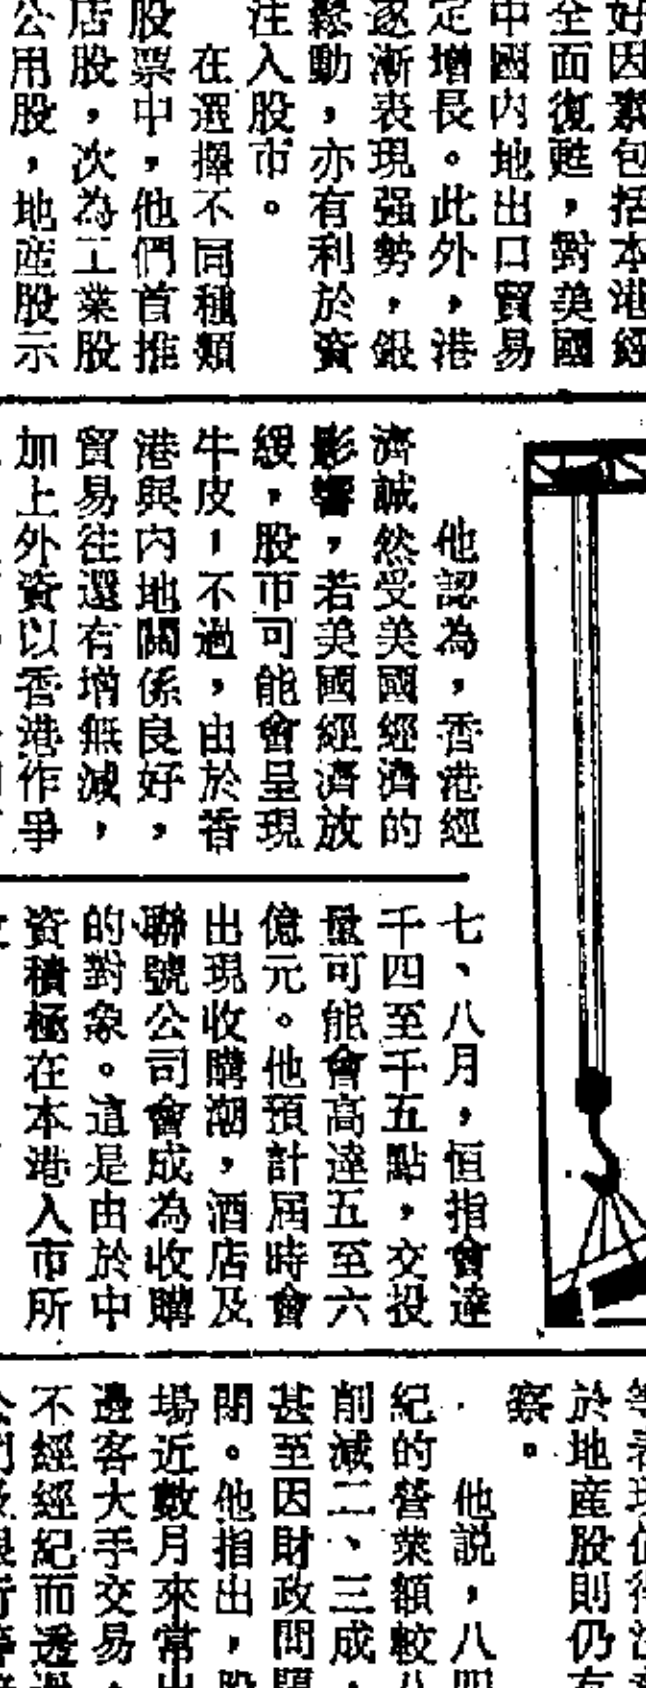 好因素包括本港經
全面復甦，對美國
中國内地出口貿易
定增長。此外，港
逐漸表現强勢，銀
鬆動，亦有利於資
注入股市。
在選擇不同種類
股票中，他們首推
店股，次為工業股
公用股，地産股示
他認為，香港經
濟誠然受美國經濟的
影響，若美國經濟放
緩，股市可能會呈現
牛皮，不過，由於香
港與内地關係良好，
貿易往還有增無減，
加上外資以香港作爭
七、八月，恒指會達
千四至千五點，交投
量可能會高達五至六
億元。他預計屆時會
出現收購潮，酒店及
聯號公司會成為收購
的對象。這是由於中
資積極在本港入市所
於地産股則仍有
察。
他説，八四
紀的營業額較八
削減二、三成，
甚至因財政問題
閉。他指出，股
場近數月來常出
邊客大手交易，
不經經紀而透過